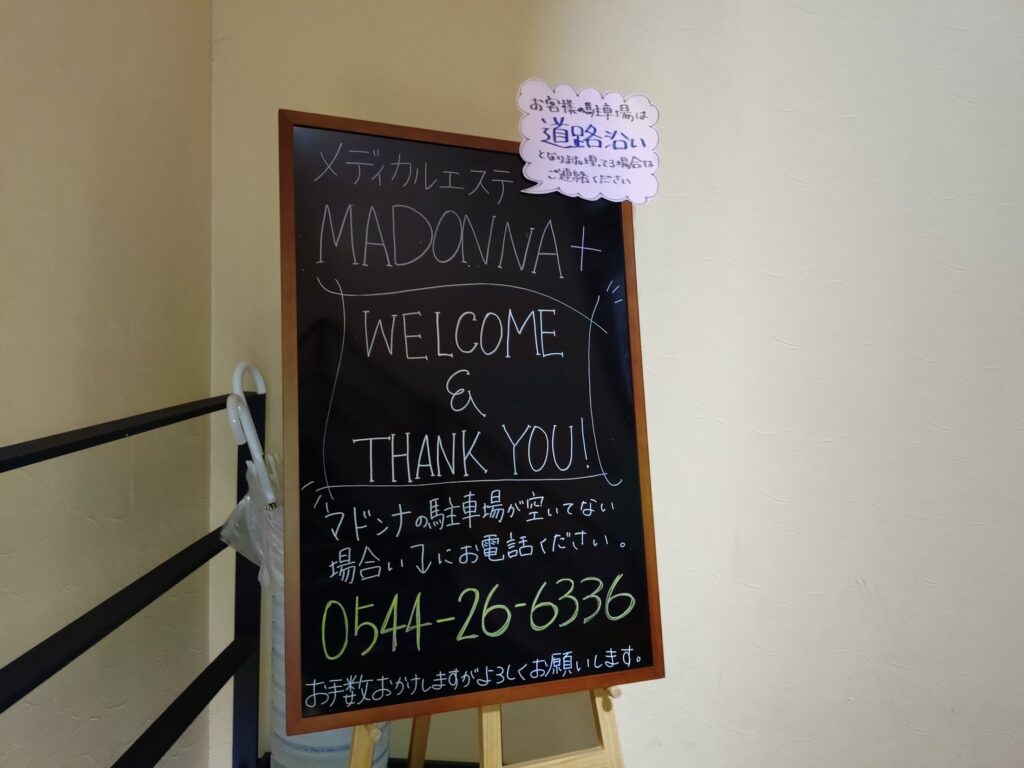 お客様の駐車場は
道路沿い
となりますね埋ってる場合は
ご連絡ください
メディカルエステ
MADONNA+
WELCOME
&
THANK YOU!
マドンナの駐車場が空いてない
場合い↓にお電話ください。
0544-26-6336
お手数おかけしますがよろしくお願いします。